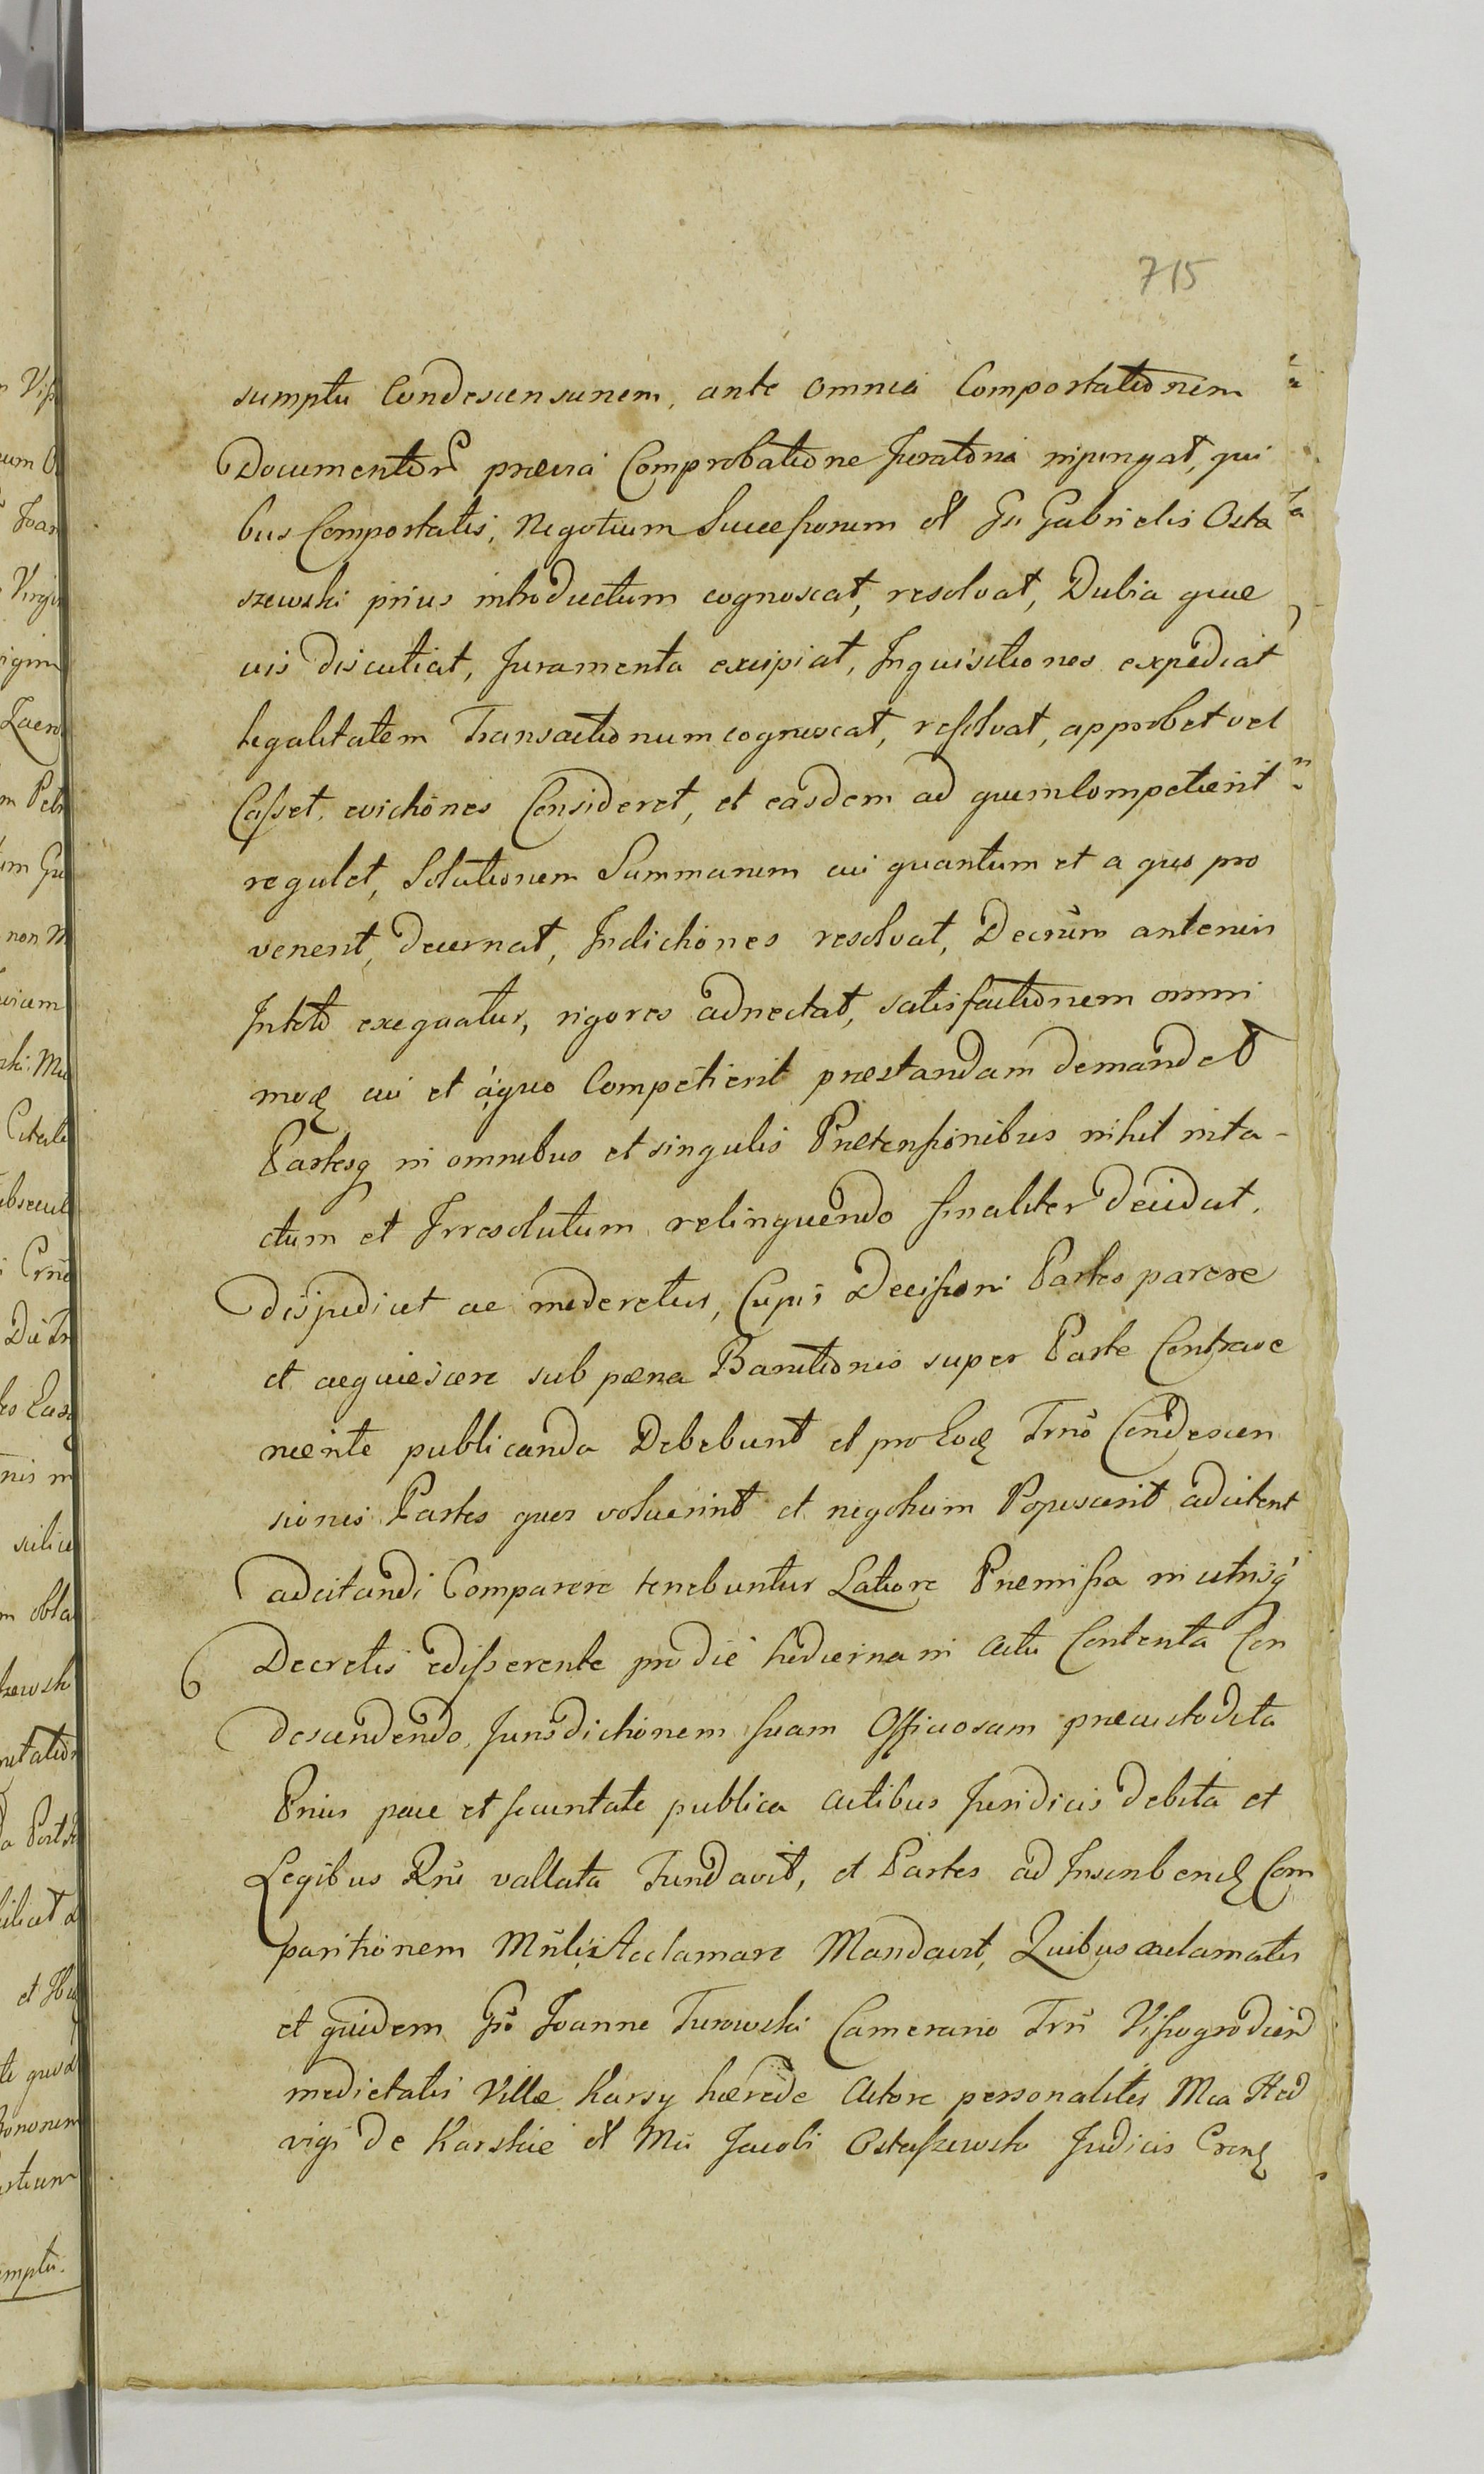 715
sumptu Condescensunem, ante omnia Comportationem
Documentor̃ prævia Comprobatione Juratoria injungat, qui
bus Comportatis, Negotium Successorum et Gsi Gabrielis Osta
szewski prius introductum cognoscat, resolvat, Dubia quæ
vis discutiat, Juramenta excipiat, Inquisitiones expediat
legalitatem Transactionum cognoscat, resolvat, approbet vel
Casset, evictiones Consideret, et easdem ad quem Competierit
regulet, Solutionem Summarum cui quantum et a quo pro
venerit, decernat, Indictiones resolvat, Decrũm anterius
In toto exequatur, rigores adnectat, satisfactionem omni
modą cui et à quo Competierit præstandam demandet
Partesq in omnibus et singulis Prætensionibus nihil inta-
ctum et Irresolutum relinquendo finaliter decidat,
disjudicet ac moderetur, Cujus Decisioni Partes parere
et acquiescere sub pæna Banitionis super Parte Contrave
niente publicanda Debebunt et pro eodą Trno Condescen
sionis Partes quos voluerint et negotium Poposcerit adcitent
adcitandi Comparere tenebuntur Latiore Præmissa in utrisq
Decretis edisserente pro die hodierna in actu Contenta Con
descendendo, Jurisdictionem suam Officiosam præcustodita
Prius pace et securitate publica actibus Juridicis debita et
Legibus Rni vallata Fundavit, et Partes ad Inscribendą Com
paritionem Mñlij Acclamare Mandavit, Quibus acclamatis
et quidem Gso Joanne Turowski Camerario Trñ Vissogrodien
medietatis Villæ Karsy hærede Actore personaliter Mca Hed
vigi de Karskie et Mci Jacobi Ostaszewski Judicis Crenę